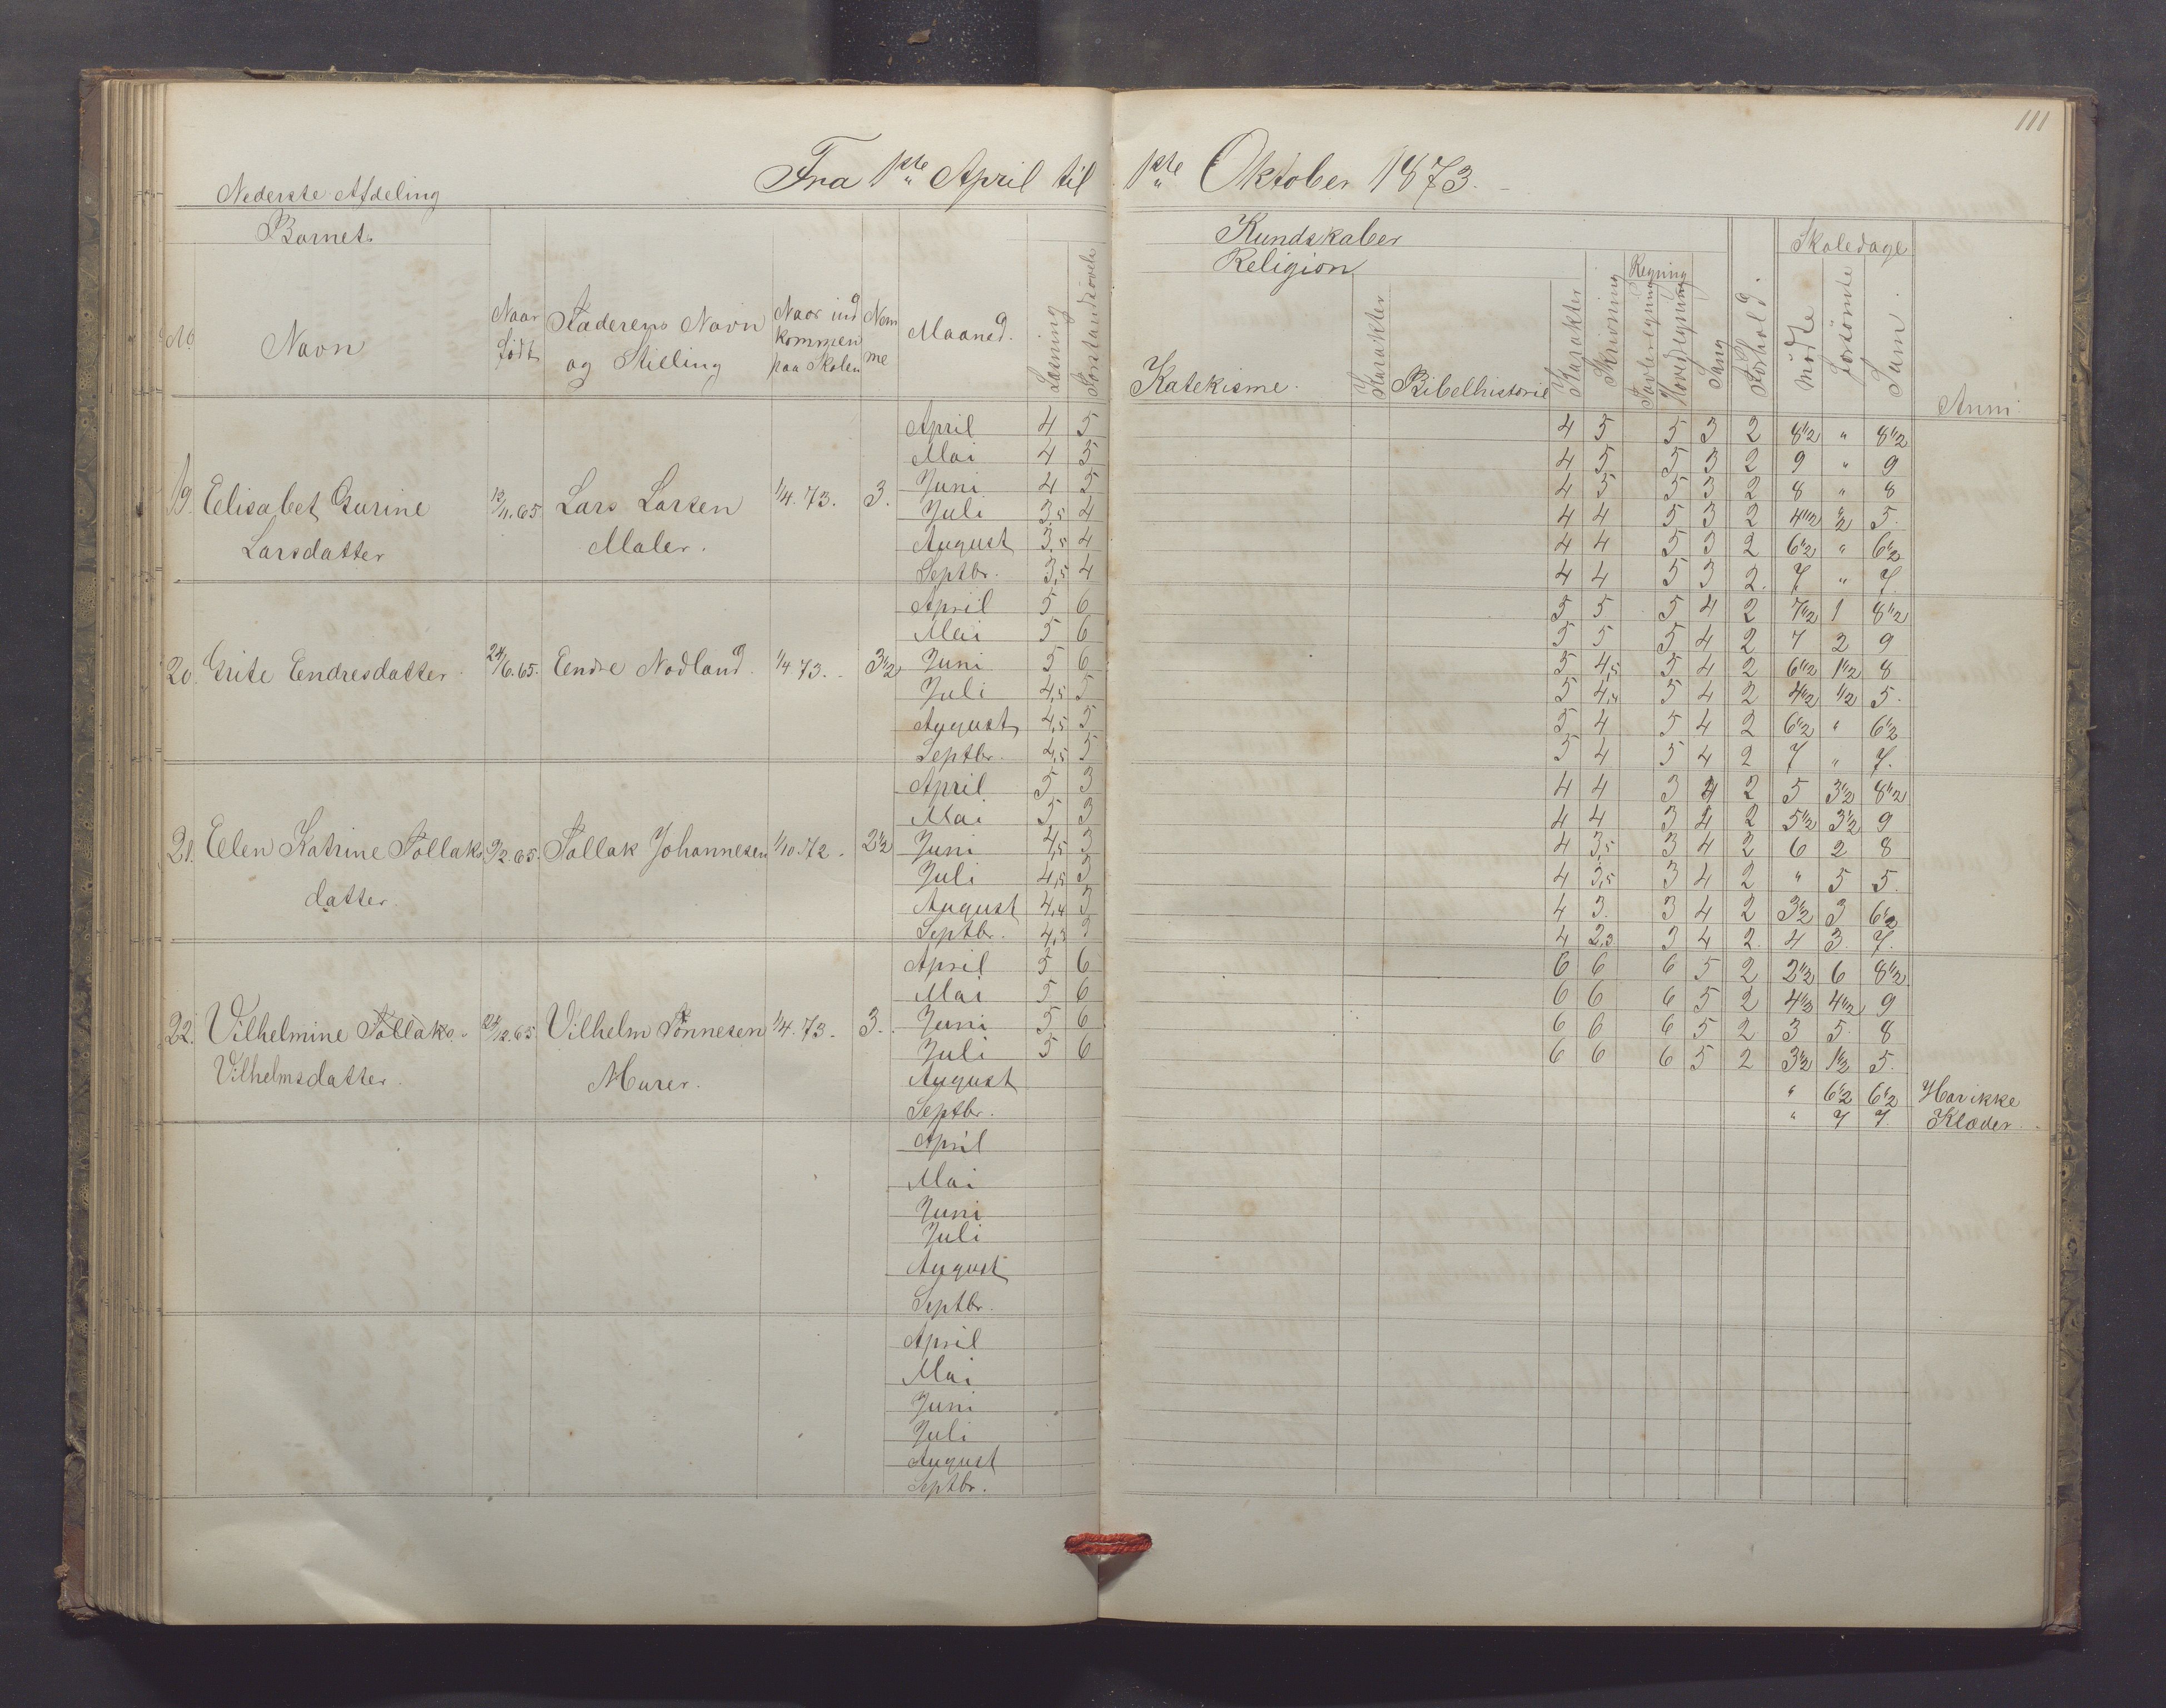 111
Fra 1ste April til 1ste Oktober 1873.
Nederste Afdeling
Barnets
No.
Navn
Naar født
Faderens Navn og Stilling
Naar ind kommen paa Skolen
Nem me
Maaned.
Læsning
Forstandsøvels
Kundskaber
Religion
Katekisme.
Karakter
Bibelhistorie
Karakter
Skrivning
Regning
Tavleregning
Hovedregning
Sang
Forhold.
Skoledage
mødte
forsømte
Sum.
Anm.
19. Elisabet Gurine Larsdatter 13/11.65 Lars Larsen Maler. 1/4.73. 3.
April 4 5 4 5 5 3 2 8 1/2 " 8 1/2
Mai 4 5 4 5 5 3 2 9 " 9
Juni 4 5 4 5 5 3 2 8 " 8
Juli 3,5 4 4 4 5 3 2 4 1/2 1/2 5.
August 3,5 4 4 4 5 3 2 6 1/2 " 6 1/2
Septbr. 3,5 4 4 4 5 3 2. 7 " 7.
20. Grite Endresdatter. 24/6.65. Endre Nodland. 1/4 73. 3 1/2
April 5 6 5 5 5 4 2 7 1/2 1 8 1/2
Mai 5 6 5 5 5 4 2 7 2 9
Juni 5 6 5 4,5 5 4 2 6 1/2 1 1/2 8
Juli 4,5 5 5 4,4 5 4 2 4 1/2 1/2 5.
August 4,5 5 5 4 5 4 2 6 1/2 " 6 1/2
Septbr. 4,5 5 5 4 5 4 2 7 " 7.
21. Elen Katrine Tollaks datter. 9/2.65. Tollak Johannesen 1/10.72. 2 1/2
April 5 3 4 4 3 4 2 5 3 1/2 8 1/2
Mai 5 3 4 4 3 4 2 5 1/2 3 1/2 9
Juni 4,5 3 4 3,5 3 4 2 6 2 8
Juli 4,5 3 4 3,5 3 4 2 " 5 5.
August 4,4 3 4 3. 3 4 2 3 1/2 3 6 1/2
Septbr. 4,3 3 4 2,3 3 4 2. 4 3. 7.
22. Vilhelmine Tollaks Vilhelmsdatter. 24/12.65 Vilhelm Tønnesen Murer. 1/4.73. 3.
April 5 6 6 6 6 5 2 2 1/2 6 8 1/2
Mai 5 6 6 6 6 5 2 4 1/2 4 1/2 9
Juni 5 6 6 6 6 5 2 3 5. 8
Juli 5 6 6 6 6 5 2 3 1/2 1 1/2 5.
August " 6 1/2 6 1/2 Har ikke
Septbr. " 7 7. Klæder.
April
Mai
Juni
Juli
August
Septbr.
April
Mai
Juni
Juli
August
Septbr.